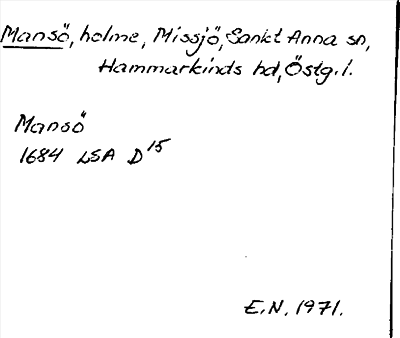 Mansö, holme, Missjö, Sankt Anna sn,
Hammarkinds hd, Östg.l.
Mansö
1684 LSA D15
E.N. 1971.